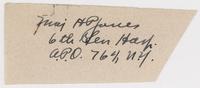 Maj H P Jones
6th Gen Hosp.
A.P.O. 764 N.Y.